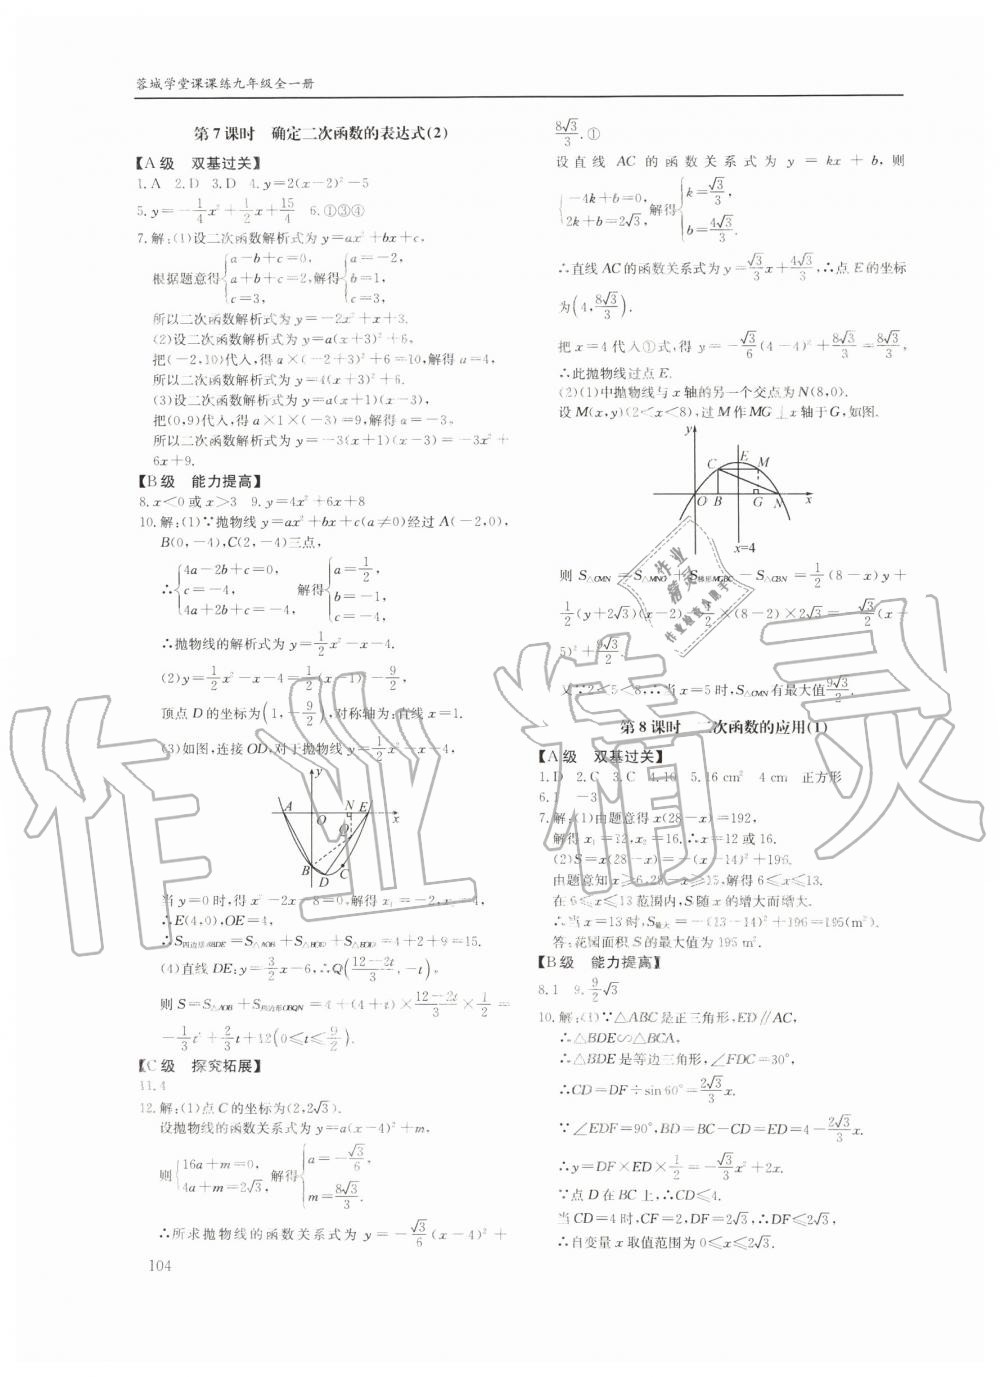 蓉城学堂课课练九年级全一册
第7课时 确定二次函数的表达式(2)
【A级 双基过关】
1.A 2.D 3.D 4.y=2(x-2)²-5
5.y=-1/4x²+1/2x+15/4 6.①③④
7.解:(1)设二次函数解析式为y=ax²+bx+c,
根据题意得{a-b+c=0, a+b+c=2, c=3, 解得{a=-2, b=1, c=3,
所以二次函数解析式为y=-2x²+x+3.
(2)设二次函数解析式为y=a(x+3)²+6,
把(-2,10)代入,得a×(-2+3)²+6=10,解得a=4,
所以二次函数解析式为y=4(x+3)²+6.
(3)设二次函数解析式为y=a(x+1)(x-3),
把(0,9)代入,得a×1×(-3)=9,解得a=-3,
所以二次函数解析式为y=-3(x+1)(x-3)=-3x²+
6x+9.
【B级 能力提高】
8.x<0或x>3 9.y=4x²+6x+8
10.解:(1)∵抛物线y=ax²+bx+c(a≠0)经过A(-2,0),
B(0,-4),C(2,-4)三点,
∴{4a-2b+c=0, c=-4, 4a+2b+c=-4, 解得{a=1/2, b=-1, c=-4,
∴抛物线的解析式为y=1/2x²-x-4.
(2)y=1/2x²-x-4=1/2(x-1)²-9/2,
顶点D的坐标为(1,-9/2),对称轴为:直线x=1.
(3)如图,连接OD,对于抛物线y=1/2x²-x-4,
y
A O N E x
Q
B D C
当y=0时,得x²-2x-8=0,解得x₁=-2,x₂=4,
∴E(4,0),OE=4,
∴S四边形ABDE=S△AOB+S△BOD+S△EOD=4+2+9=15.
(4)直线DE:y=3/2x-6,∴Q((12-2t)/3,-t),
则S=S△AOB+S四边形OBQN=4+(4+t)×(12-2t)/3×1/2=
-1/3t²+2/3t+12(0≤t≤9/2).
【C级 探究拓展】
11.4
12.解:(1)点C的坐标为(2,2√3).
设抛物线的函数关系式为y=a(x-4)²+m,
则{16a+m=0, 4a+m=2√3, 解得{a=-√3/6, m=8√3/3.
∴所求抛物线的函数关系式为y=-√3/6(x-4)²+
104
8√3/3.①
设直线AC的函数关系式为y=kx+b,则
{-4k+b=0, 2k+b=2√3, 解得{k=√3/3, b=4√3/3.
∴直线AC的函数关系式为y=√3/3x+4√3/3,∴点E的坐标
为(4,8√3/3).
把x=4代入①式,得y=-√3/6(4-4)²+8√3/3=8√3/3,
∴此抛物线过点E.
(2)(1)中抛物线与x轴的另一个交点为N(8,0).
设M(x,y)(2<x<8),过M作MG⊥x轴于G,如图.
y
C E M
O B G N x
x=4
则S△CMN=S△MNG+S梯形MGBC-S△CBN=1/2(8-x)y+
1/2(y+2√3)(x-2)-1/2×(8-2)×2√3=-√3/2(x-
5)²+9√3/2.
又∵2<5<8,∴当x=5时,S△CMN有最大值9√3/2.
第8课时 二次函数的应用(1)
【A级 双基过关】
1.D 2.C 3.C 4.16 5.16 cm² 4 cm 正方形
6.1 -3
7.解:(1)由题意得x(28-x)=192,
解得x₁=12,x₂=16.∴x=12或16.
(2)S=x(28-x)=-(x-14)²+196.
由题意知x≥6,28-x≥15,解得6≤x≤13.
在6≤x≤13范围内,S随x的增大而增大.
∴当x=13时,S最大=-(13-14)²+196=195(m²).
答:花园面积S的最大值为195 m².
【B级 能力提高】
8.1 9.9/2√3
10.解:(1)∵△ABC是正三角形,ED∥AC,
∴△BDE∽△BCA,
∴△BDE是等边三角形,∠FDC=30°,
∴CD=DF÷sin 60°=2√3/3x.
∵∠EDF=90°,BD=BC-CD=ED=4-2√3/3x.
∴y=DF×ED×1/2=-√3/3x²+2x.
∵点D在BC上,∴CD≤4.
当CD=4时,CF=2,DF=2√3,∴DF≤2√3,
∴自变量x取值范围为0≤x≤2√3.
作业精灵
作业精灵
作业检查小助手